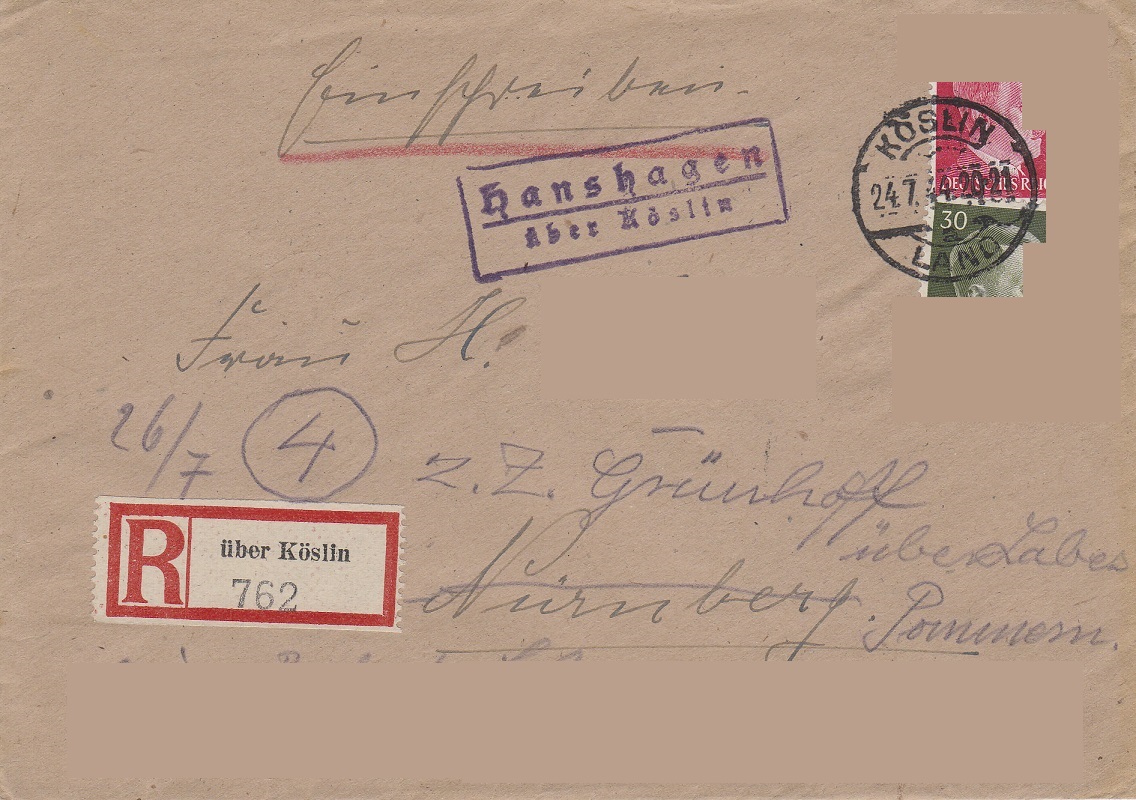 Einschreiben.
Hanshagen
über Köslin
KÖSLIN
24.7.44.20-21
a
LAND
DEUTSCHES REIC
30
Frau H.
26/7
4
z.Z. Grünhoff
über Labes
Nürnberg.
Pommern.
R
über Köslin
762